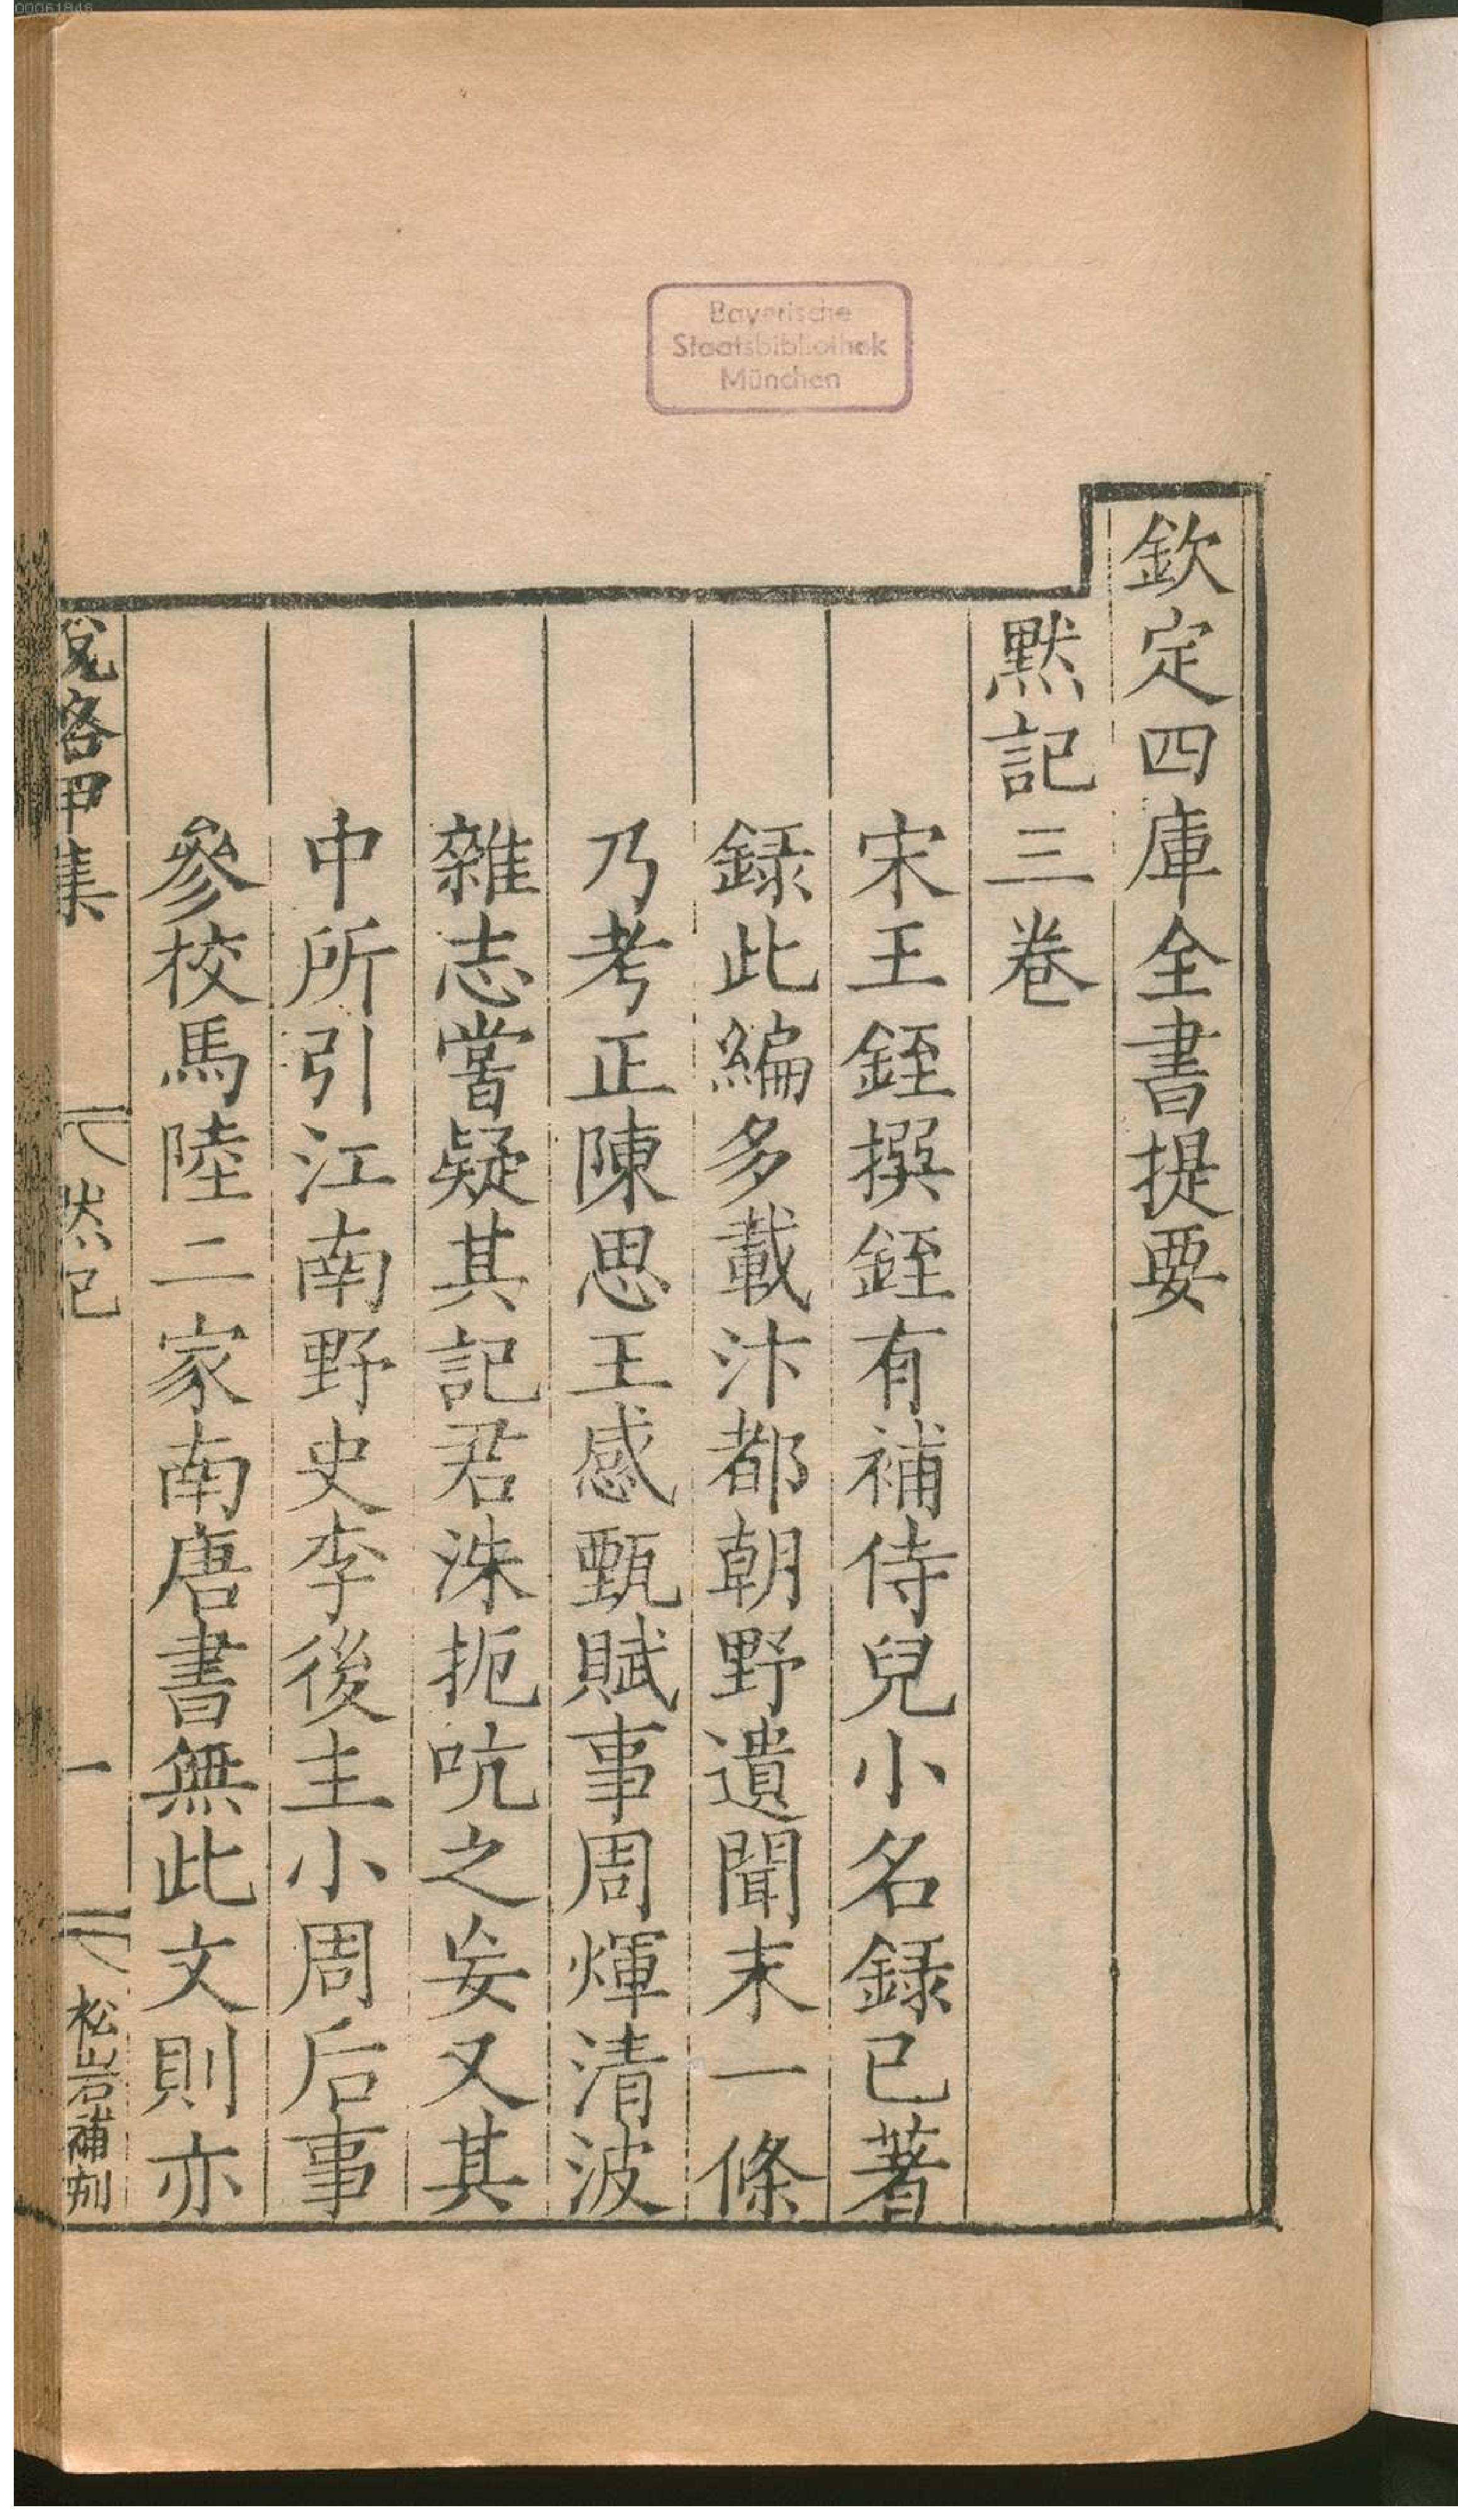 欽定四庫全書提要
默記三卷
宋王銍撰銍有補侍兒小名錄已著
錄此編多載汴都朝野遺聞末一條
乃考正陳思王感甄賦事周煇清波
雜志嘗疑其記君洙扼吭之妄又其
中所引江南野史李後主小周后事
參校馬陸二家南唐書無此文則亦
集
一
松岩補刻
Bayerische
Staatsbibliothek
München
00061848